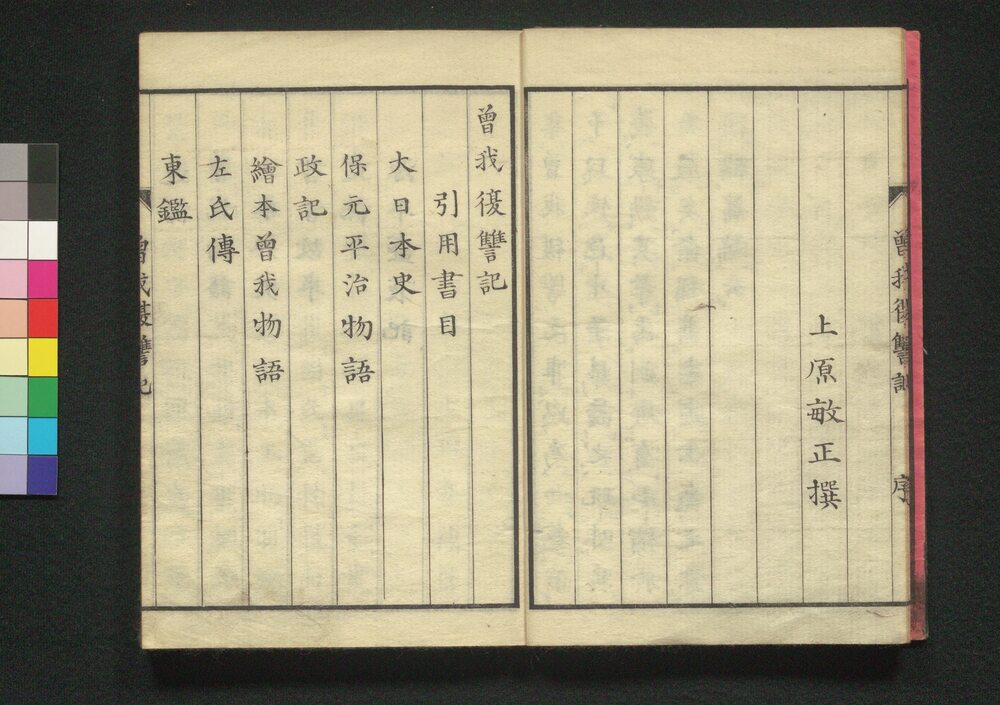 曾我復讐記
序
上原敏正撰
曾我復讐記
引用書目
大日本史
保元平治物語
政記
繪本曾我物語
左氏傳
東鑑
曾我復讐記